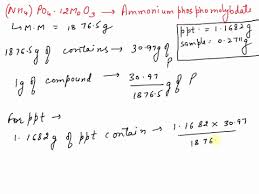 (NH4) PO4 · 12MoO3 → Ammonium phosphomolybdate
↳ M.M = 1876.5g
ppt = 1.1682g
sample = 0.2711g
1876.5g of contains → 30.97g of P
1g of compound → 30.97 / 1876.5g P
For ppt →
1.1682g of ppt contain → 1.1682 × 30.97 / 1876